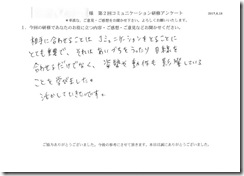 様 第2回コミュニケーション研修アンケート
＊本日は、ご意見・ご感想をお聞かせください。よろしくお願いいたします。
1．今回の研修であなたのお役に立つ内容・ご感想・ご意見などお聞かせください。
相手に合わせることは コミュニケーションをとることに
とても重要で、それは あいづちをうったり 目線を
合わせるだけでなく、姿勢や動作も影響している
ことを学びました。
活かしていきたいです。
ご協力ありがとうございました。